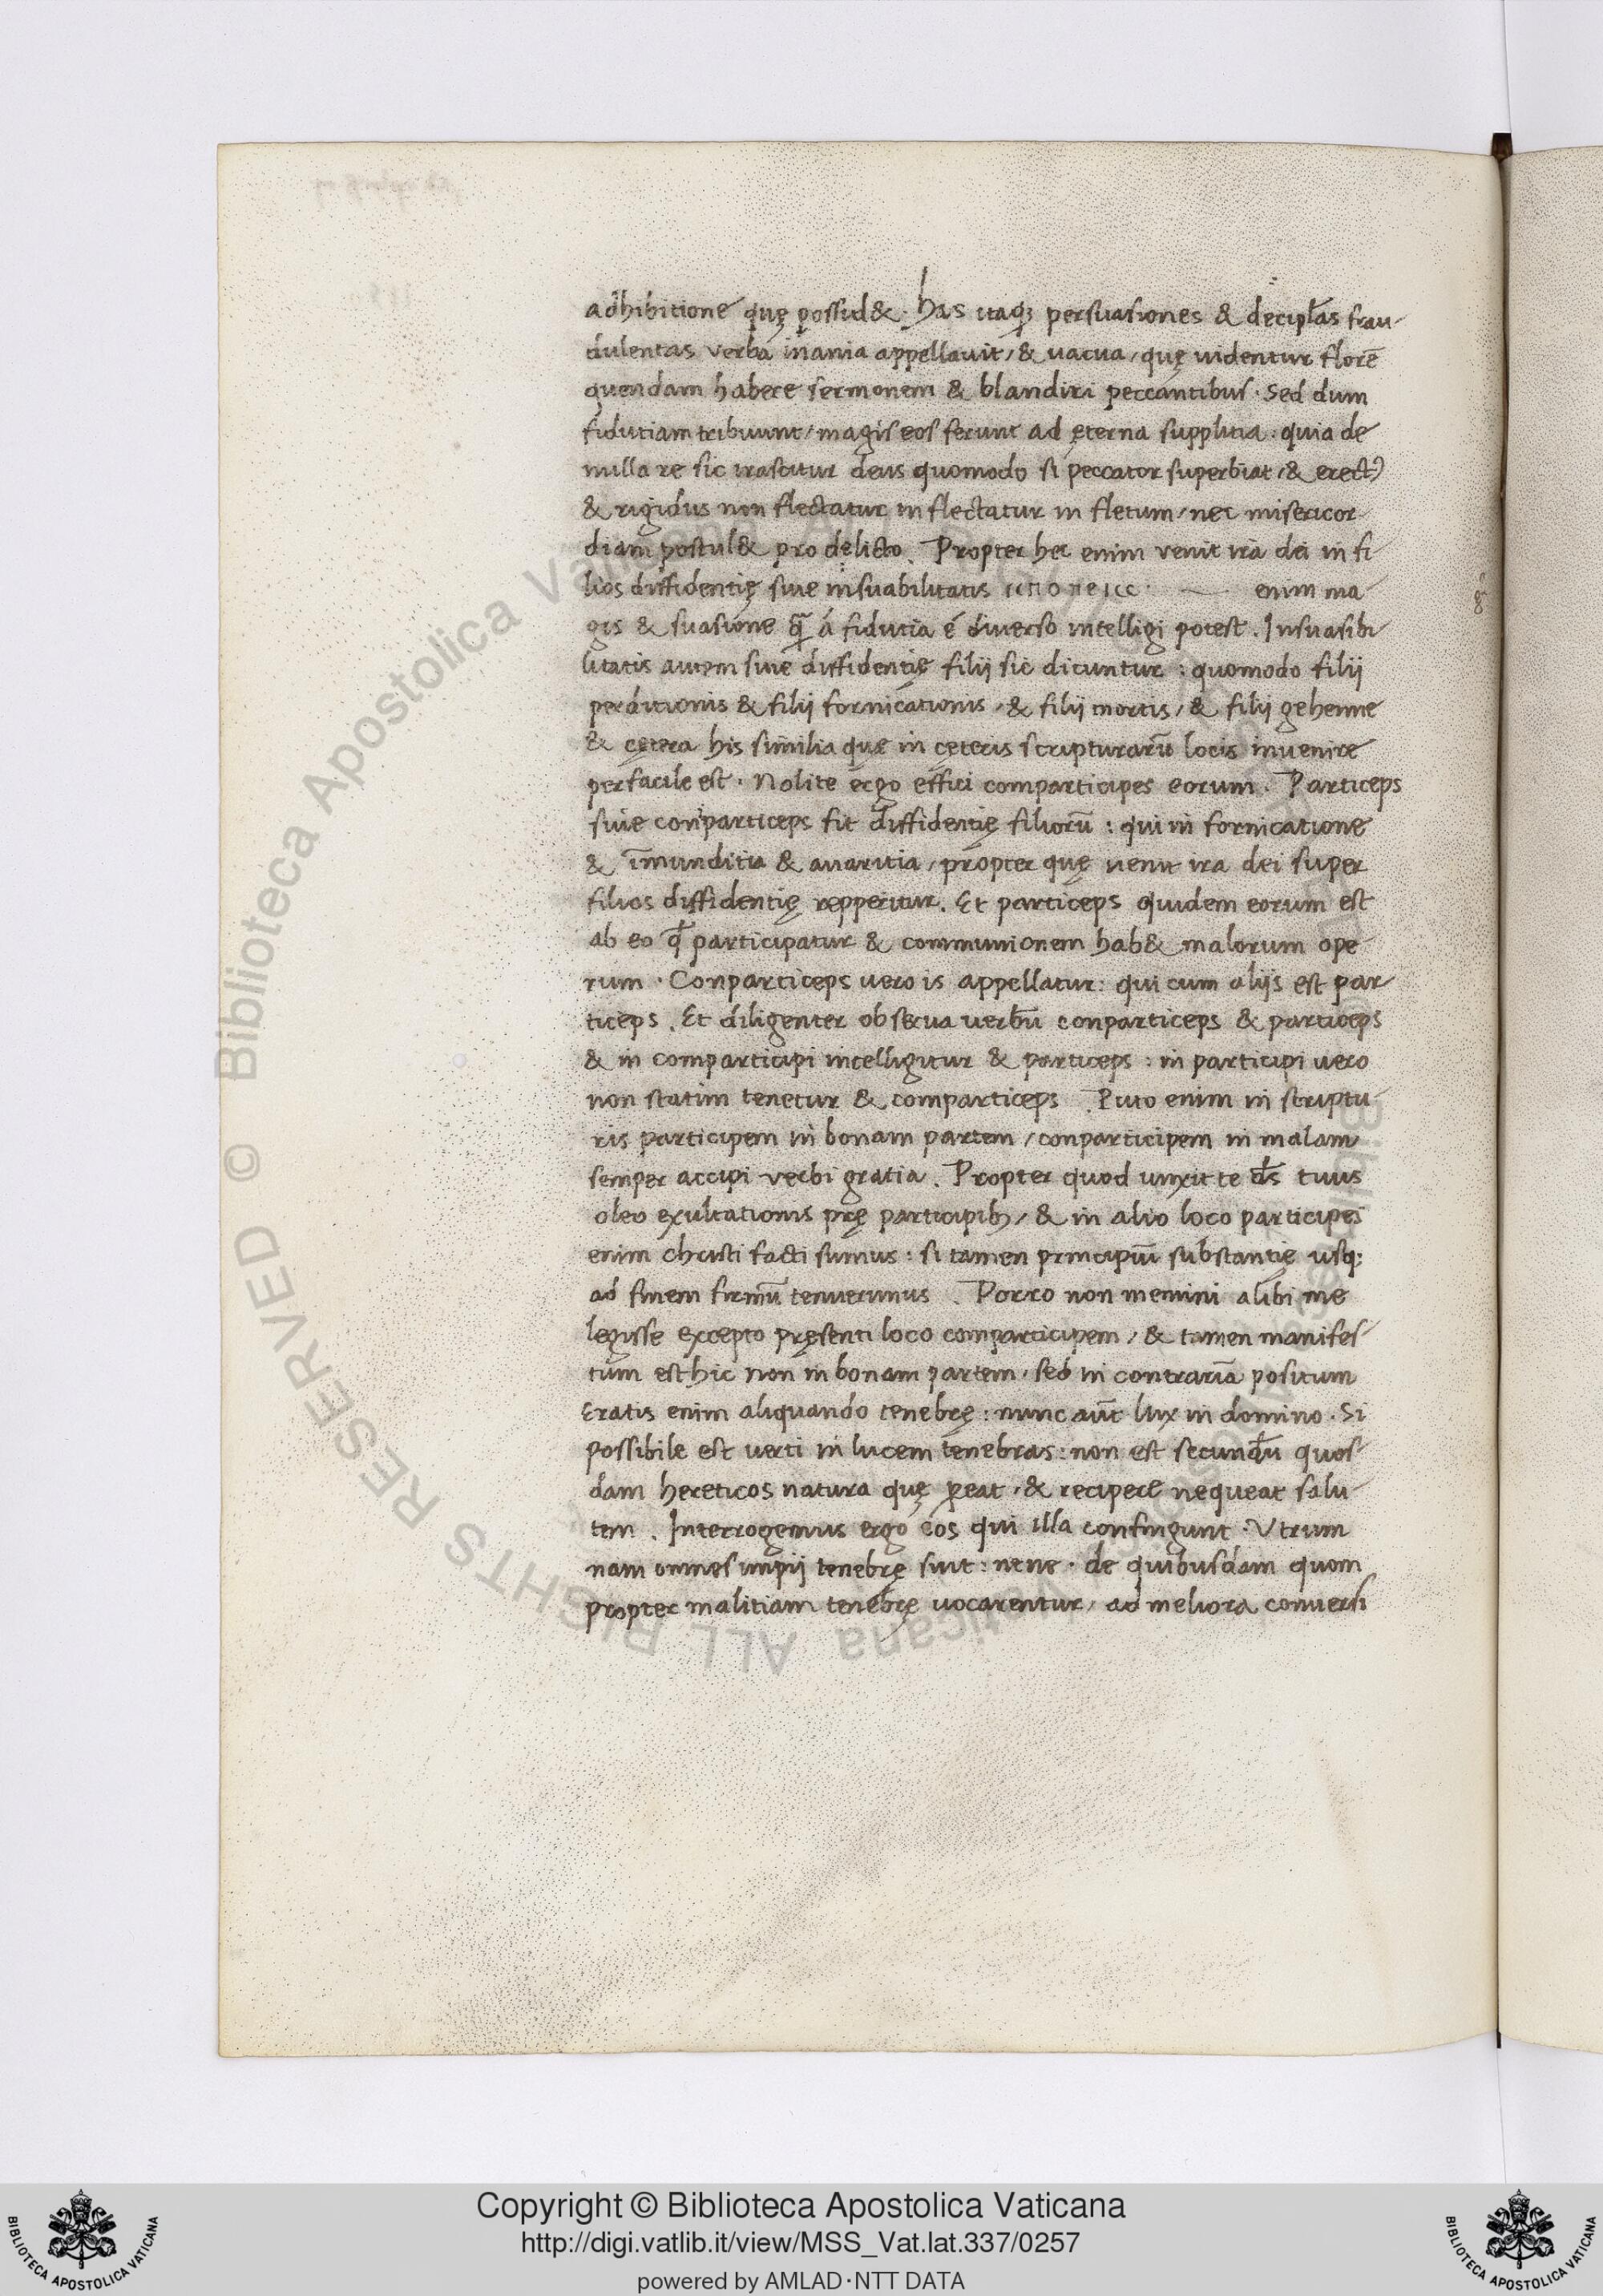 adhibitione quę possid&. has itaq; persuasiones & decipłas frau-
dulentas verba inania appellauit, & uacua, quę uidentur florē
quendam habere sermonem & blandiri peccantibus. Sed dum
fidutiam tribuunt, magis eos ferunt ad ęterna supplitia. quia de
nulla re sic irascitur deus quomodo si peccator superbiat, & erectꝰ
& rigidus non flectatur in flectatur in fletum, nec misericor-
diam postul& pro delicto. Propter hec enim venit ira dei in fi-
lios diffidentię siue insuabilitatis enim ma-
gis & suasione q̄ á fidutia é diuerso intelligi potest. Insuasibi
litatis autem siue diffidentię filij sic dicuntur : quomodo filij
perditionis & filij fornicationis, & filij mortis, & filij gehenne
& cętera his similia quę in ceteris scripturarū locis inuenire
perfacile est. Nolite ergo effici comparticipes eorum. Particeps
siue conparticeps fit diffidentię filiorū : qui in fornicatione
& īmunditia & auaritia, propter quę uenit ira dei super
filios diffidentię repperitur. Et particeps quidem eorum est
ab eo qđ participatur & communionem hab& malorum ope
rum. Conparticeps uero is appellatur: qui cum alijs est par-
ticeps. Et diligenter obserua uerbū conparticeps & particeps
& in comparticipi intelligitur & particeps : in participi vero
non statim tenetur & comparticeps. Puto enim in scriptu-
ris participem in bonam partem, conparticipem in malam
semper accipi verbi gratia. Propter quod unxit te d̄s tuus
oleo exultationis prę participib;, & in alio loco participes
enim christi facti sumus : si tamen principiū substantię usq;
ad finem firmū tenuerimus. Porro non memini alibi me
legisse excepto pręsenti loco comparticipem, & tamen manifes-
tum est hic non in bonam partem, sed in contrariā positum
Eratis enim aliquando tenebrę : nunc aūt lux in domino. Si
possibile est uerti in lucem tenebras : non est secundū quos-
dam hereticos natura quę pereat, & recipere nequeat salu-
tem. Interrogemus ergo eos qui illa confingunt. Vtrum
nam omnes impij tenebrę sint : nene. de quibusdam quom
propter malitiam tenebrę uocarentur, ad meliora conuersi
© Biblioteca Apostolica Vaticana ALL RIGHTS RESERVED
Copyright © Biblioteca Apostolica Vaticana
http://digi.vatlib.it/view/MSS_Vat.lat.337/0257
powered by AMLAD·NTT DATA
BIBLIOTECA APOSTOLICA VATICANA
BIBLIOTECA APOSTOLICA VATICANA